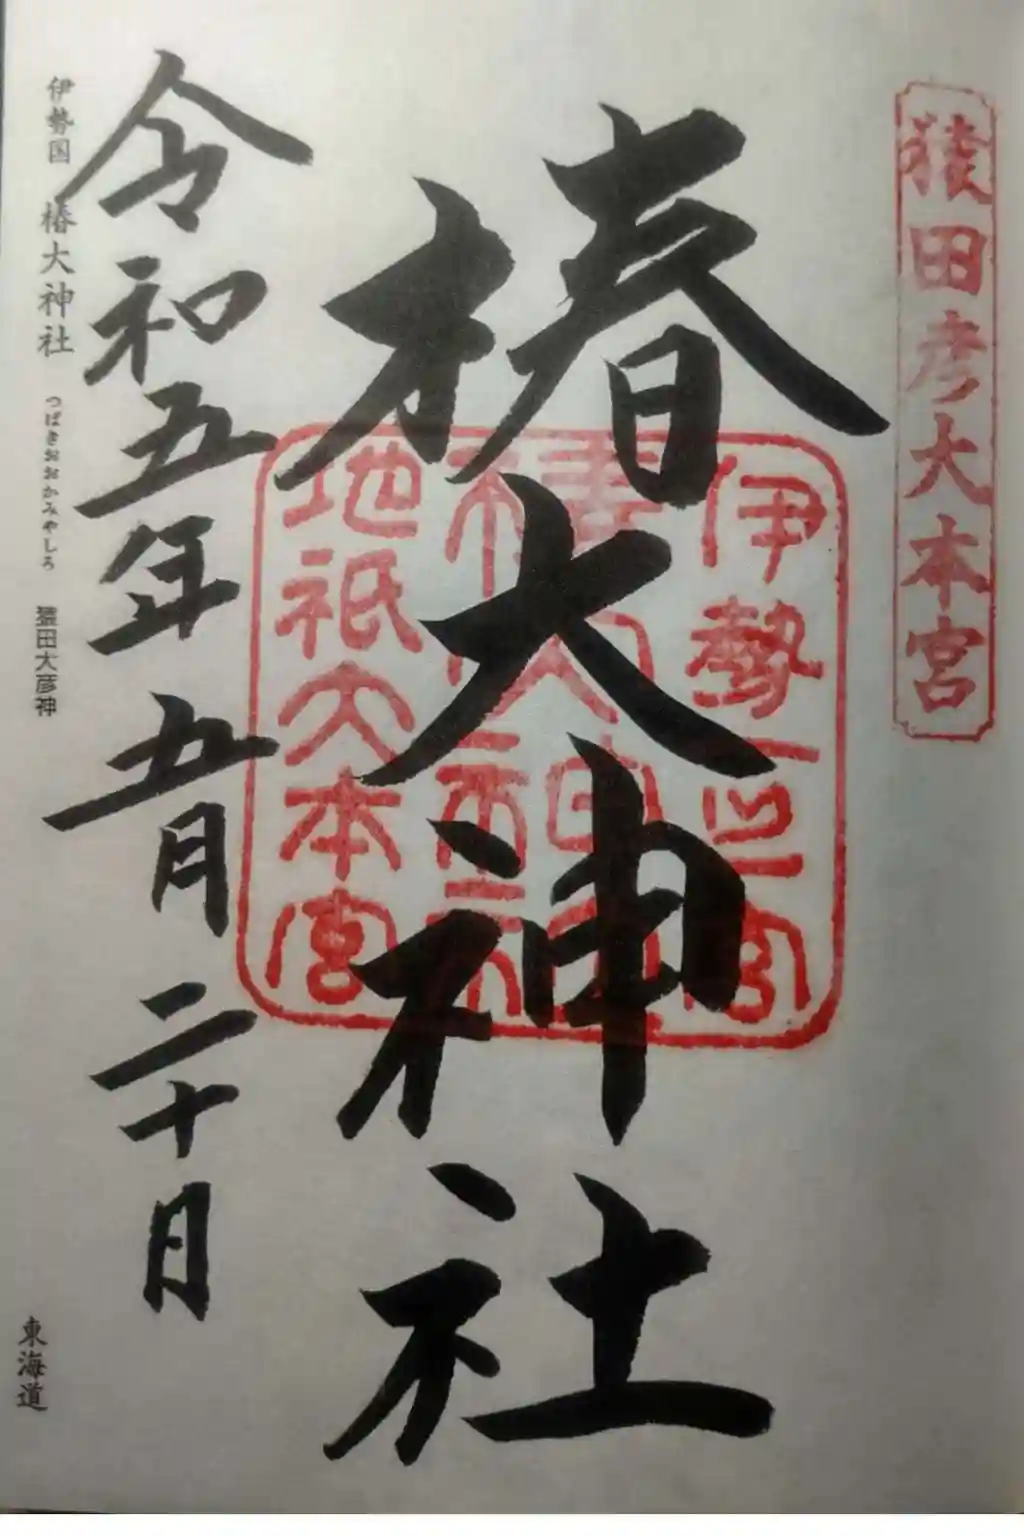 猿田彦大本宮
椿大神社
伊勢一之宮
椿大神社
地祇大本宮
令和五年五月二十日
伊勢国 椿大神社 つばきおおかみやしろ 猿田大彦神
東海道